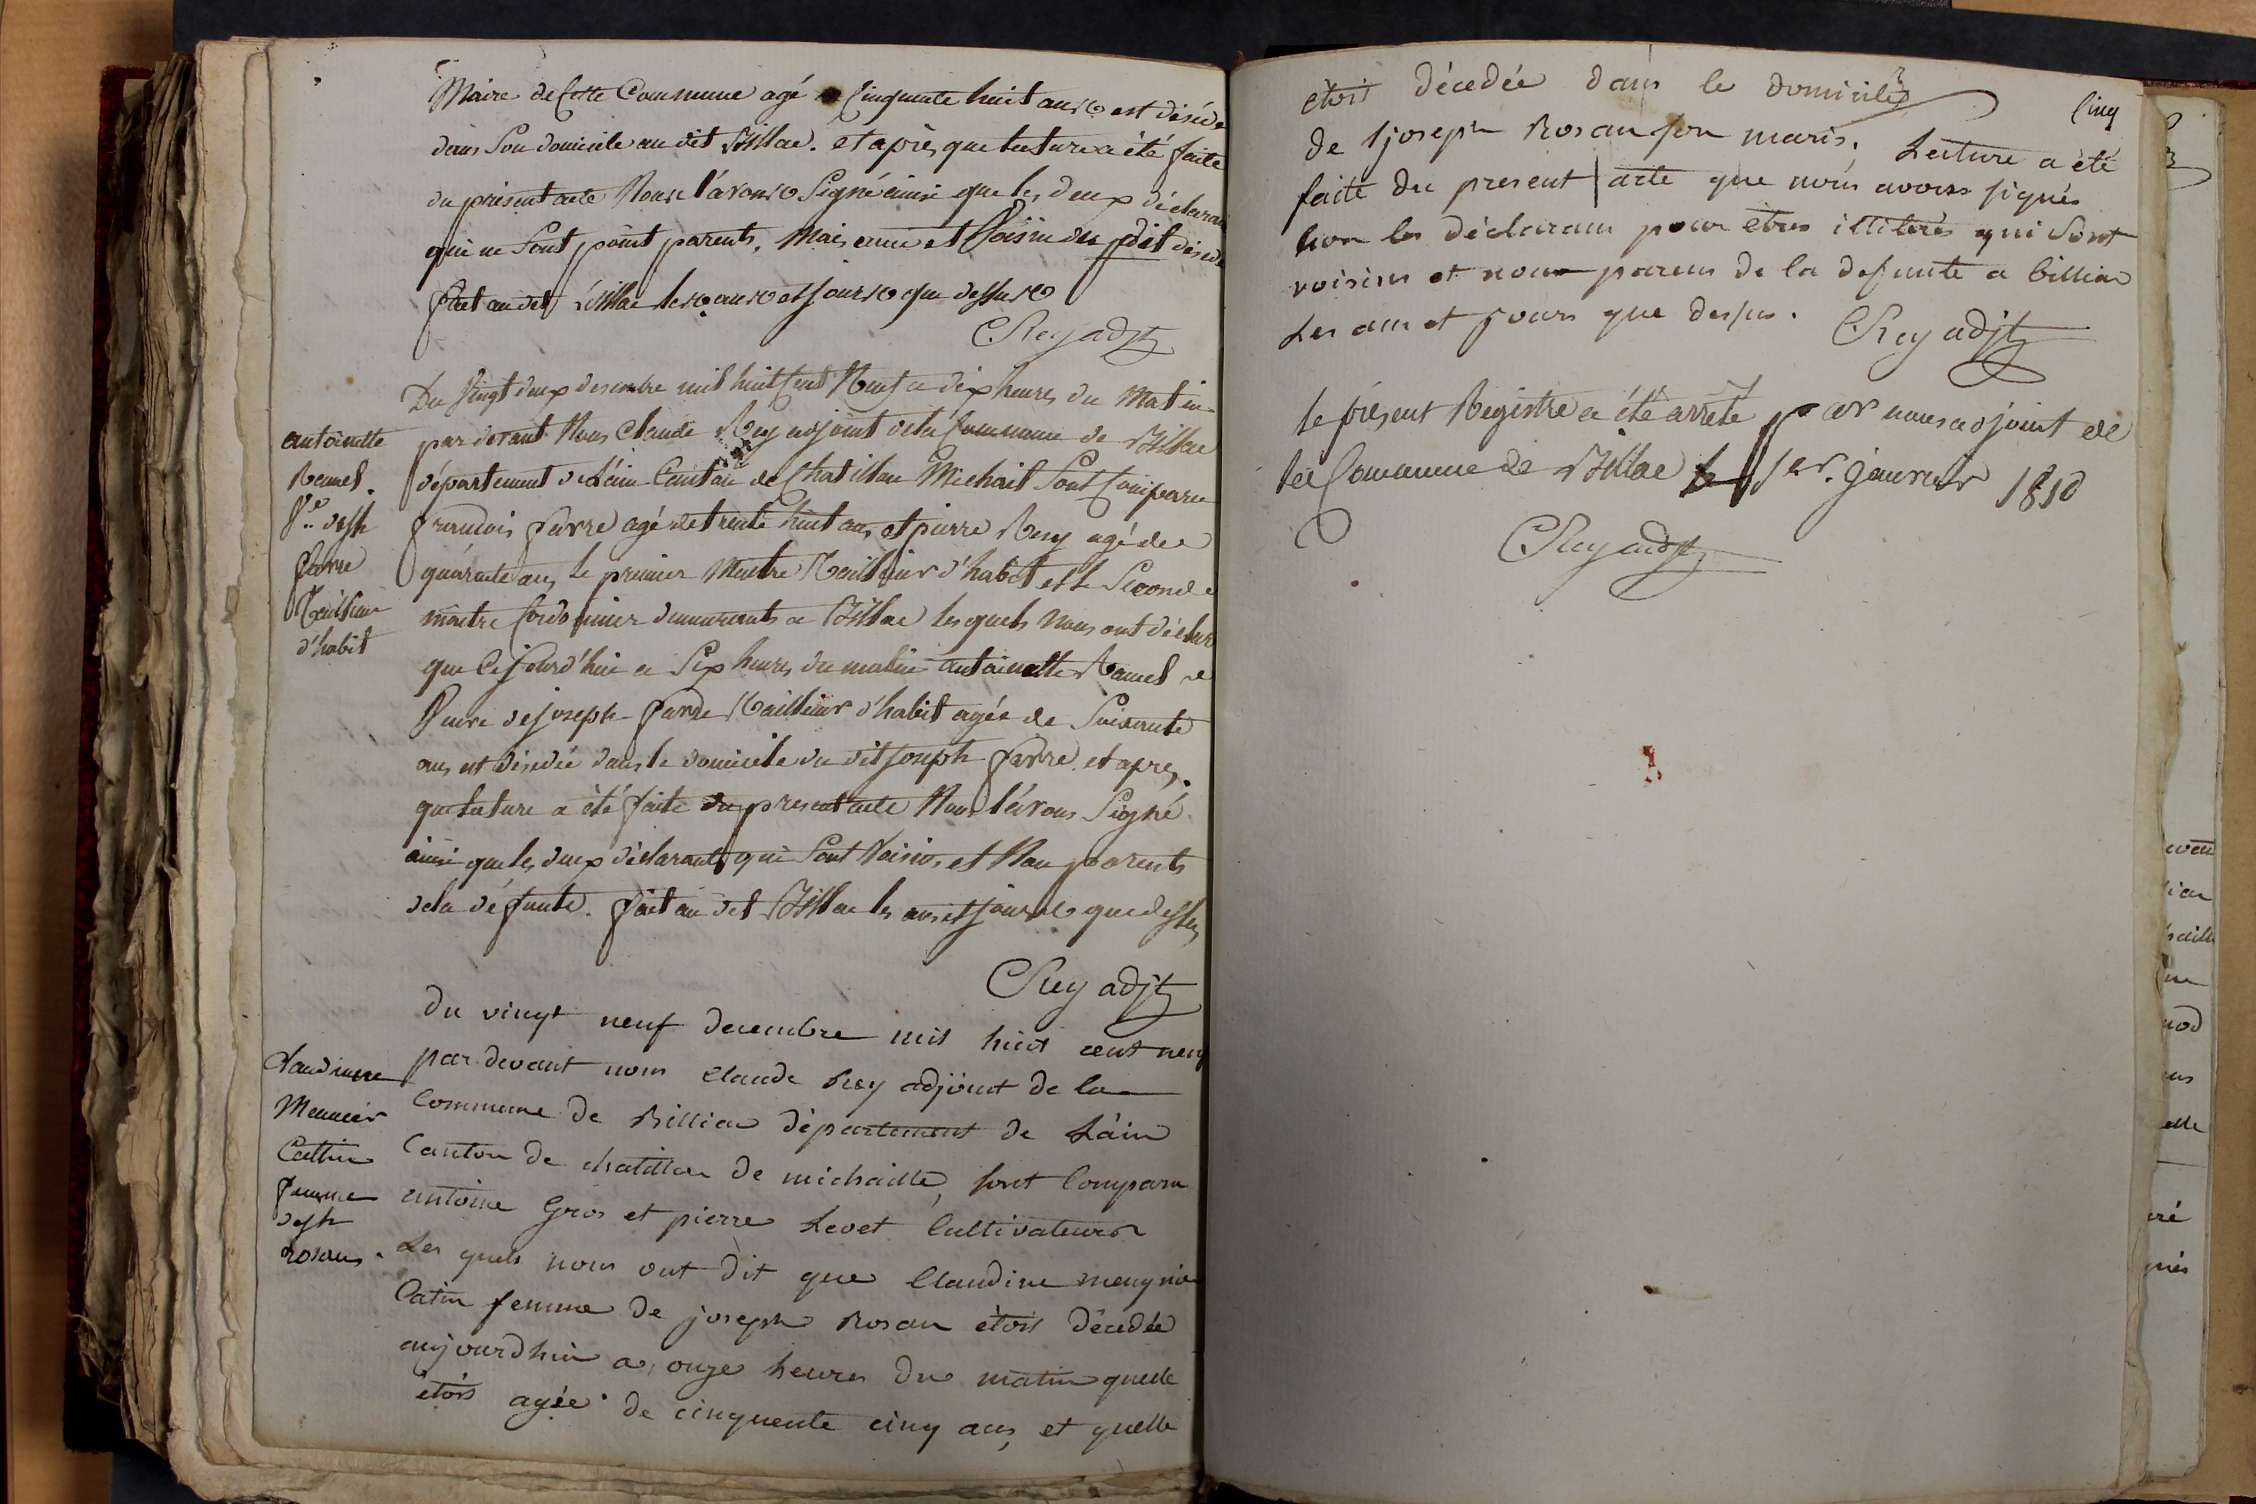 Maire de Cette Commune agé Cinquente huit ans est désédé
dans Son domicile au dit Billiac. et après que lecture a été faite
du présent acte Nous l'avons Signé ainsi que les deux déclarans
qui ne Sont point parents, Mais amis et Voisin du dit désédé
fait au dit Billiac les ans et jours que dessus
CRey adjt
Du Vingt deux desembre mil huit Cent Neuf a dix heures du Matin
par devant Nous Claude Rey adjoint de la Commune de Billiac
département de Lain Canton de Chatillon Michail Sont Comparu
francois favre agé de trente huit ans et pierre Rey agé de
quarante ans, le premier Maitre Tailleur d'habit et le Second
maitre Cordonnier demeurants a Billiac les quels Nous ont déclaré
que Cejourd'hui a Six heures du matin antoinette Ramel
Veuve de joseph favre Tailleur d'habit agée de Soixante
ans est désédée dans le domicile du dit joseph favre. et apres
que lecture a été faite du present acte Nous l'avons Signé
ainsi que les deux déclarants qui Sont Voisins et Non parents
de la défunte. fait au dit Billiac les ans et jours que dessus
CRey adjt
antoinette
Ramel.
Ve de jh
favre
Tailleur
d'habit
du vingt neuf decembre mil huit cent neuf
par devant nous Claude Rey adjoint de la
Commune de Billiac département de Láin
Canton de chatillon de michaille, sont Comparu
antoine Gros et pierre Levet Cultivateurs
Les quels nous ont dit que Claudine meugnie
Catin femme de joseph Rosan étoit décedée
aujourdhui a onze heures du matin quelle
étois agée de cinquente cinq ans, et quelle
Claudine
Meunier
Cattin
femme
de jh
rosan.
Cinq
étoit décedée dans le domicile
de joseph Rosan son maris, Lecture a été
faite du present acte que nous avons signés
non les déclarans pour êtres illiterés qui Sont
voisins et non parens de la defunte a billiac
Les ans et jours que dessus.
CRey adjt
le présent Registre a été arrêté par nous adjoint de
la Commune de Billiac le 1er. janvier 1810
CRey adjt